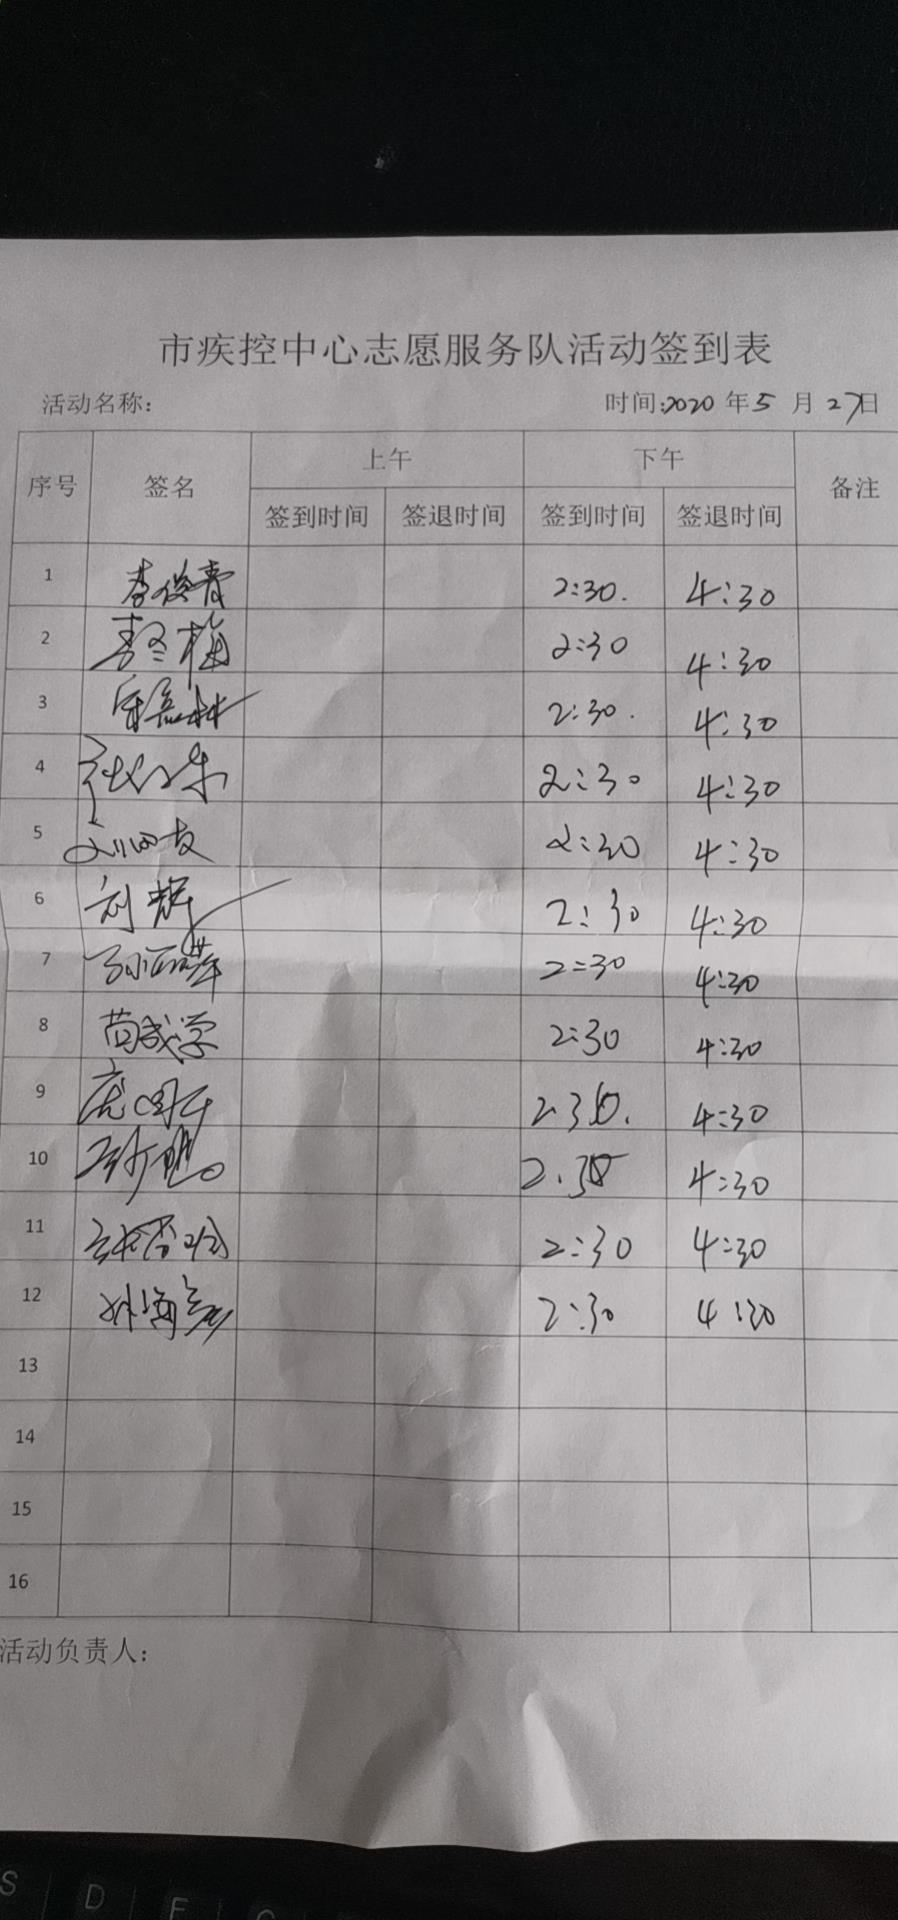 市疾控中心志愿服务队活动签到表
活动名称: 时间:2020年5月27日
序号 签名 上午 下午 备注
签到时间 签退时间 签到时间 签退时间
1 李俊青 2:30. 4:30
2 2:30 4:30
3 2:30. 4:30
4 2:30 4:30
5 2:30 4:30
6 刘辉 2:30 4:30
7 2:30 4:30
8 苗成学 2:30 4:30
9 2.30. 4:30
10 2.30 4:30
11 2:30 4:30
12 2:30 4:30
13
14
15
16
活动负责人:
S D F